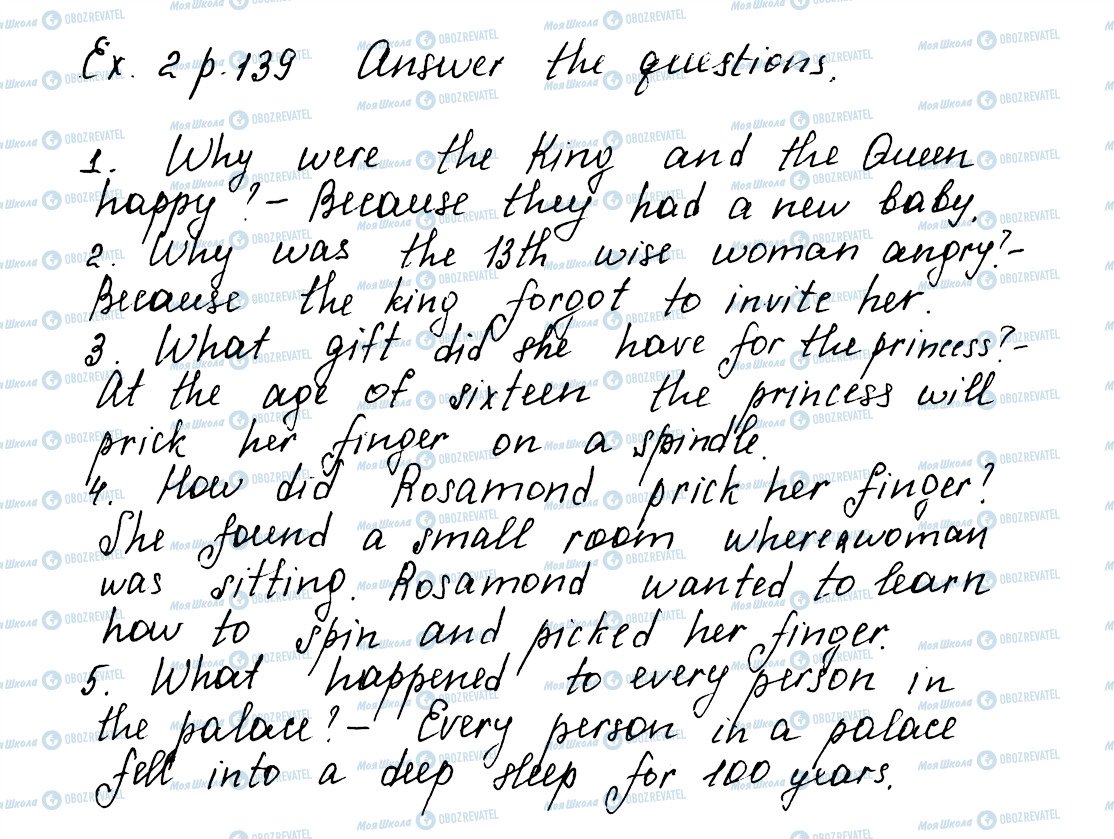 Ex. 2 p.139 Answer the questions.
1. Why were the King and the Queen
happy? – Because they had a new baby.
2. Why was the 13th wise woman angry? –
Because the king forgot to invite her.
3. What gift did she have for the princess? –
At the age of sixteen the princess will
prick her finger on a spindle.
4. How did Rosamond prick her finger?
She found a small room where a woman
was sitting. Rosamond wanted to learn
how to spin and picked her finger.
5. What happened to every person in
the palace? – Every person in a palace
fell into a deep sleep for 100 years.
МояШкола OBOZREVATEL